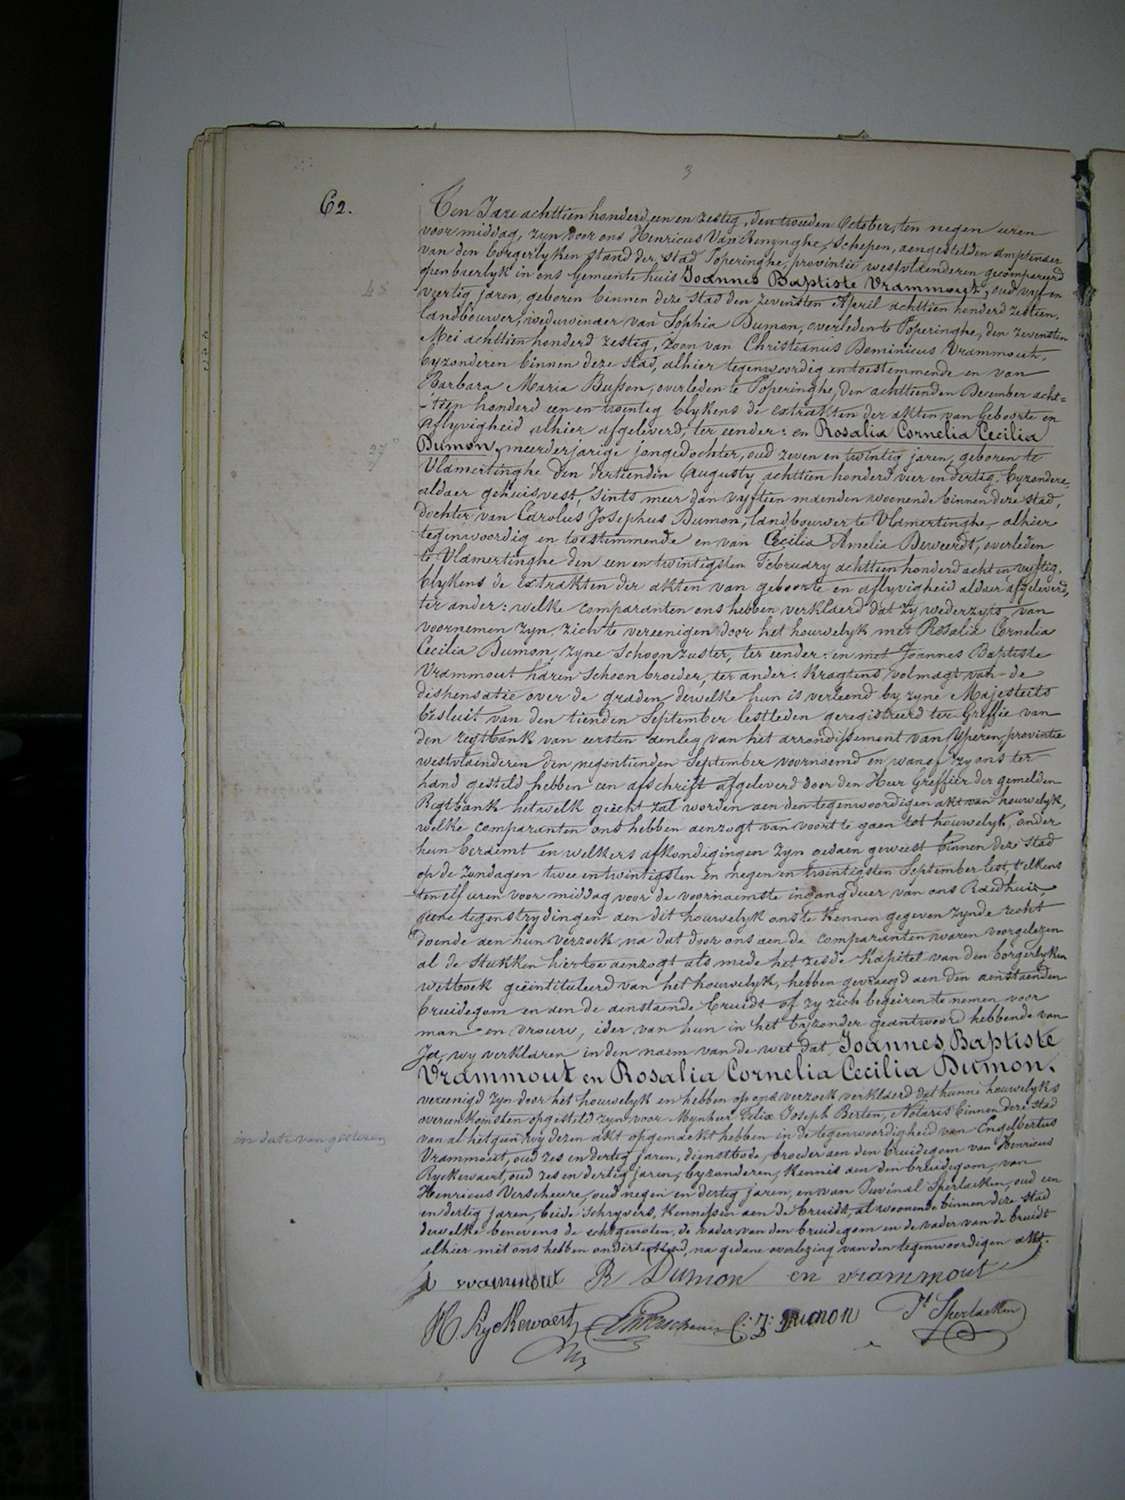 3
62.
Ten Jare achttien honderd een en zestig, den tweeden October, ten negen uren
voor middag, zyn voor ons Henricus Van Renynghe, Schepen, aengestelden amptenaer
van den borgerlyken stand der stad Poperinghe, provintie westvlaenderen gecompareerd
openbaerlyk in ons Gemeente huis Joannes Baptiste Vrammout, oud vyf en
45
veertig jaren, geboren binnen deze stad den zevensten April achttien honderd zestien,
landbouwer, weduwnaer van Sophia Dumon, overleden te Poperinghe, den zevensten
Mei achttien honderd zestig, zoon van Christianus Dominicus Vrammout,
byzonderen binnen deze stad, alhier tegenwoordig en toestemmende en van
Barbara Maria Bussen, overleden te Poperinghe, den achttienden December acht=
=tien honderd een en twintig blykens de extrakten der akten van Geboorte en
aflyvigheid alhier afgeleverd, ter eender: en Rosalia Cornelia Cecilia
27
Dumon, meerderjarige jongedochter, oud zeven en twintig jaren, geboren te
Vlamertinghe den dertienden Augusty achttien honderd vier en dertig, byzondere,
aldaer gehuisvest, sints meer dan vyftien maenden woonende binnen deze stad,
dochter van Carolus Josephus Dumon, landbouwer te Vlamertinghe, alhier
tegenwoordig en toestemmende en van Cecilia Amelia Beweerdt, overleden
te Vlamertinghe den een en twintigsten February achttien honderd acht en vyftig,
blykens de extrakten der akten van geboorte en aflyvigheid aldaer afgeleverd,
ter ander: welke comparanten ons hebben verklaerd dat zy wederzyts van
voornemen zyn, zich te vereenigen door het houwelyk met Rosalia Cornelia
Cecilia Dumon, zyne schoonzuster, ter eender: en met Joannes Baptiste
Vrammout haren Schoonbroeder, ter ander: kragtens volmagt van de
dispensatie over de graden dewelke hun is verleend by zyne Majesteits
besluit van den tienden September lestleden geregistreerd ter Greffie van
den regtbank van eersten aenleg van het arrondissement van Yperen, provintie
westvlaenderen den negentienden September voornoemd en waneof zy ons ter
hand gesteld hebben een afschrift afgeleverd door den Heer Greffier der gemelden
Regtbank hetwelk geëcht zal worden aen den tegenwoordigen akt van houwelyk,
welke comparanten ons hebben aenzogt van voort te gaen tot houwelyk, onder
hun beraemt en welkers afkondigingen zyn gedaen geweest binnen deze stad
op de zondagen twee en twintigsten en negen en twintigsten September lest, telkens
ten elf uren voor middag voor de voornaemste ingang duer van ons Raedhuis,
geene tegenstrydingen aen dit houwelyk ons te kennen gegeven zynde recht
doende aen hun verzoek, na dat door ons aen de comparanten waren voorgelezen
al de stukken hiertoe aenzogt als mede het zesde Kapitel van den borgerlyken
wetboek geïntituleerd van het houwelyk, hebben gevraegd aen den aenstaenden
bruidegom en aen de aenstaende bruidt of zy zich begeiren te nemen voor
man en vrouw, ider van hun in het byzonder geantwoord hebbende van
Ja, wy verklaren in den naem van de wet dat Joannes Baptiste
Vrammout en Rosalia Cornelia Cecilia Dumon,
vereenigd zyn door het houwelyk en hebben op ons verzoek verklaerd dat hunne houwelyks
overeenkomsten opgesteld zyn voor Mynheer Felix Joseph Berten, Notaris binnen deze stad
in date van gisteren
van al hetgan wy dezen akt opgemaekt hebben in de tegenwoordigheid van Engelbertus
Vrammout, oud zes en dertig jaren, dienstbode, broeder aen den bruidegom van Henricus
Ryckewaert, oud zes en dertig jaren, byzonderen, kennis aen den bruidegom, van
Henricus Verscheure, oud negen en dertig jaren, en van Juvénal Sperlaeken, oud een
en dertig jaren, beide schryvers, kennissen aen de bruidt, al woonende binnen deze stad
dewelke benevens de echtgenoten, de vader van den bruidegom en de vader van de bruidt
alhier met ons hebben onderteekend, na gedane overlezing van den tegenwoordigen akt.
vrammout R Dumon en vrammout
H Ryckewaert C: J: Dumon Jl Sperlaeken